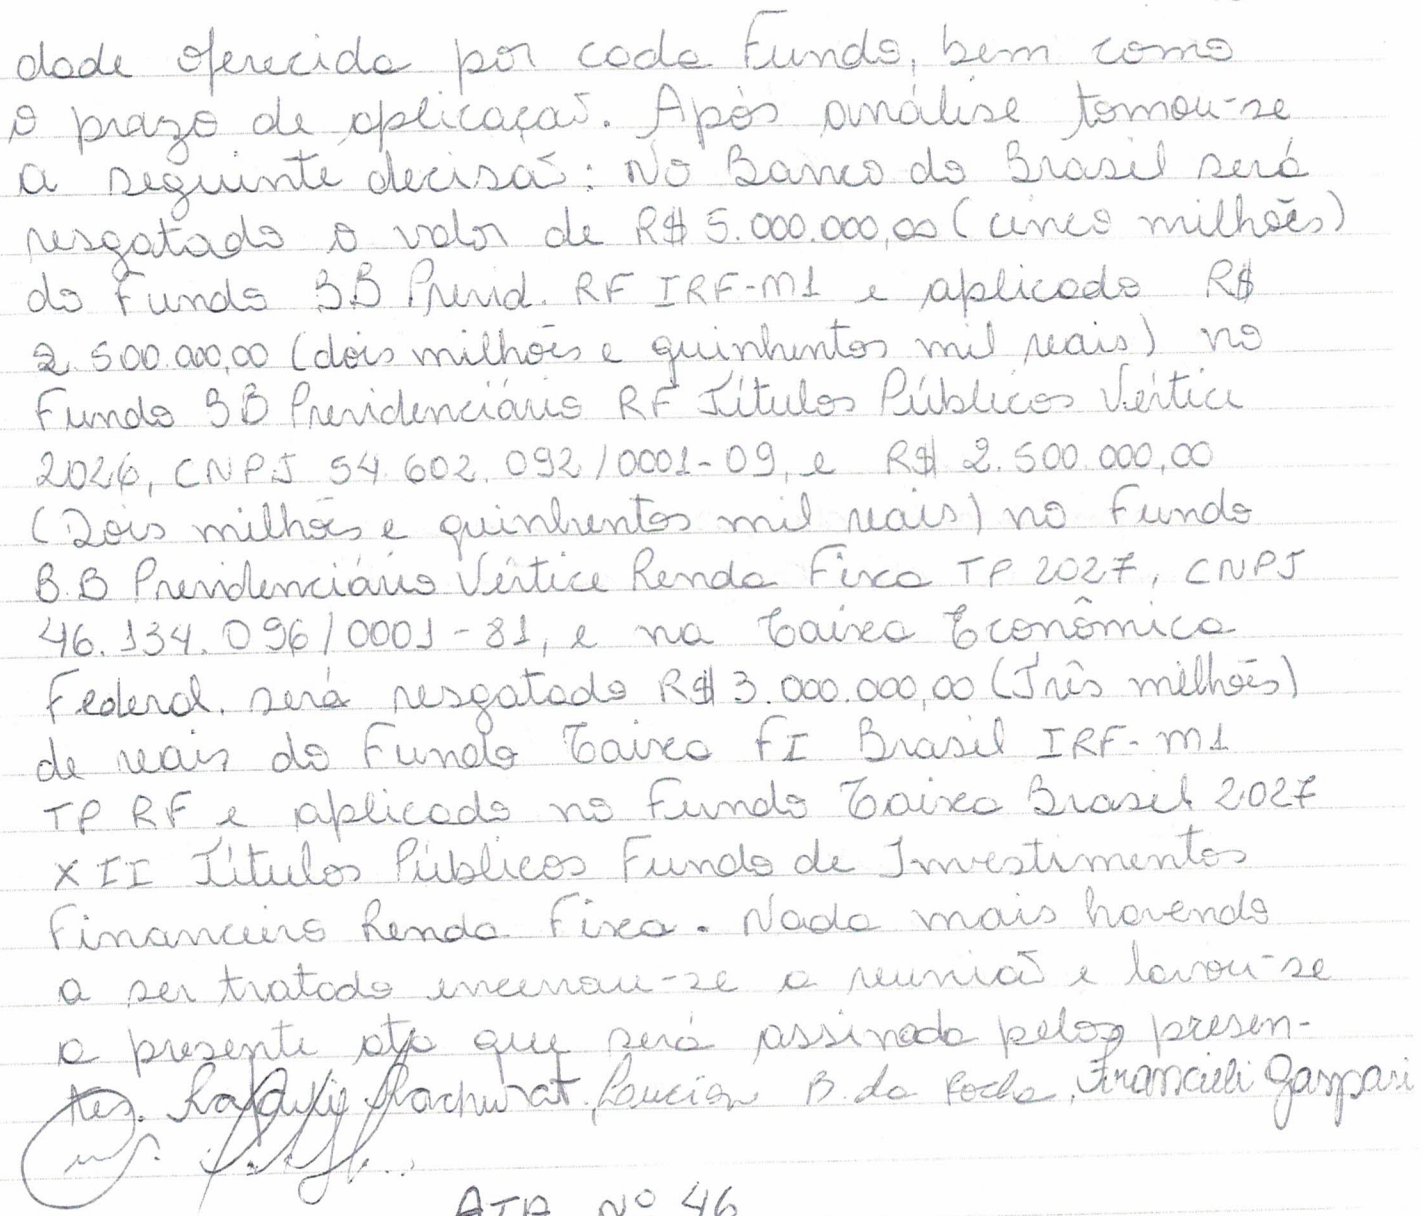 dade oferecida por cada Fundo, bem como
o prazo de aplicação. Após análise tomou-se
a seguinte decisão: No Banco do Brasil será
resgatado o valor de R$ 5.000.000,00 (cinco milhões)
do Fundo BB Previd. RF IRF-M1 e aplicado R$
2.500.000,00 (dois milhões e quinhentos mil reais) no
Fundo BB Previdenciário RF Títulos Públicos Vértice
2026, CNPJ 54.602.092/0001-09, e R$ 2.500.000,00
(Dois milhões e quinhentos mil reais) no Fundo
B.B Previdenciário Vértice Renda Fixa TP 2027, CNPJ
46.134.096/0001-81, e na Caixa Econômica
Federal. será resgatado R$ 3.000.000,00 (Três milhões)
de reais do Fundo Caixa FI Brasil IRF-M1
TP RF e aplicado no Fundo Caixa Brasil 2027
XII Títulos Públicos Fundo de Investimentos
Financeiro Renda Fixa. Nada mais havendo
a ser tratado encerrou-se a reunião e lavou-se
a presente ata que será assinada pelos presen-
tes. B. da Rocha, Francieli Gaspari
ATA Nº 46